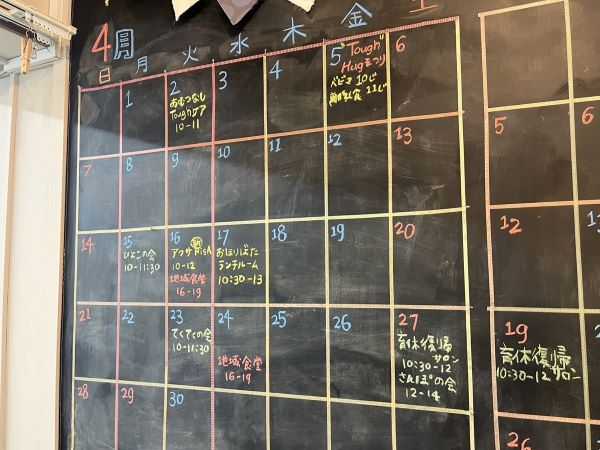 4月
日 月 火 水 木 金 土
1 2 3 4 5 6
おむつなし
Toughケア
10-11
"Tough"
Hugまつり
ベビマ 10じ
離乳食 11じ
7 8 9 10 11 12 13
14 15 16 17 18 19 20
ひとこの会
10-11:30
アフサ RisA
10-12
地域食堂
16-19
おほりばた
ランチルーム
10:30-13
21 22 23 24 25 26 27
てくてくの会
10-11:30
地域食堂
16-19
育休復帰
サロン
10:30-12
さんぽの会
12-14
28 29 30
5 6
12 13
19
育休復帰
10:30-12 サロン
26